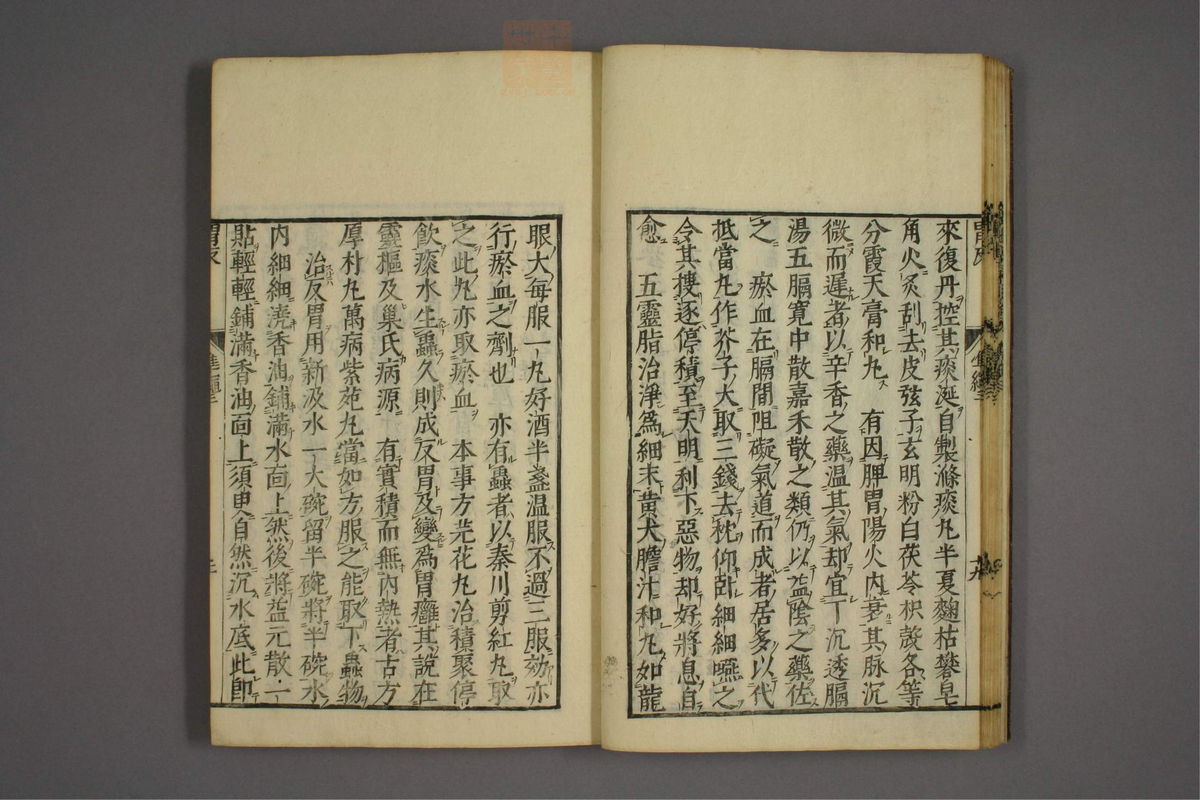 來復丹控其痰涎自製滌痰丸半夏麴枯礬皂
角火炙刮去皮弦子玄明粉白茯苓枳殼各等
分霞天膏和丸　有因脾胃陽火內衰其脉沉
微而遲者以辛香之藥温其氣却宜丁沉透膈
湯五膈寬中散嘉禾散之類仍以益陰之藥佐
之　瘀血在膈間阻礙氣道而成者居多以代
抵當丸作芥子大取三錢去枕仰卧細細嚥之
令其搜逐停積至天明利下惡物却好將息自
愈　五靈脂治淨爲細末黄犬膽汁和丸如龍
眼大每服一丸好酒半盞温服不過三服効亦
行瘀血之劑也　亦有蟲者以秦川剪紅丸取
之此丸亦取瘀血　本事方芫花丸治積聚停
飲痰水生蟲久則成反胃及變爲胃癰其說在
靈樞及巢氏病源　有實積而無內熱者古方
厚朴丸萬病紫菀丸當如方服之能取下蟲物
治反胃用新汲水一大碗留半碗將半碗水
內細細澆香油鋪滿水面上然後將益元散一
貼輕輕鋪滿香油面上須臾自然沉水底此卽